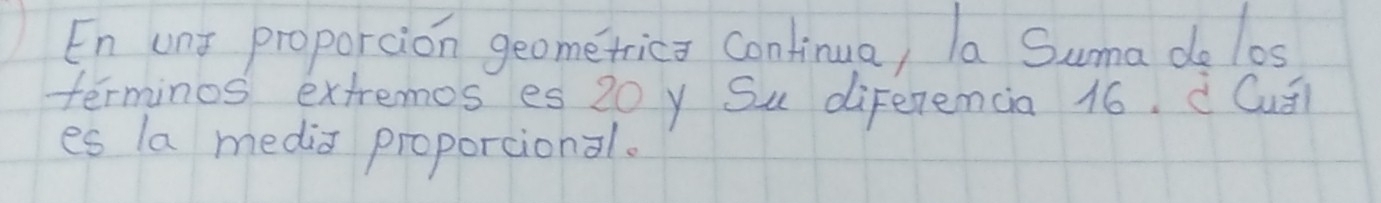 En una proporción geométrica Continua, la Suma de los
términos extremos es 20 y Su diferencia 16. ¿ Cuál
es la media proporcional.